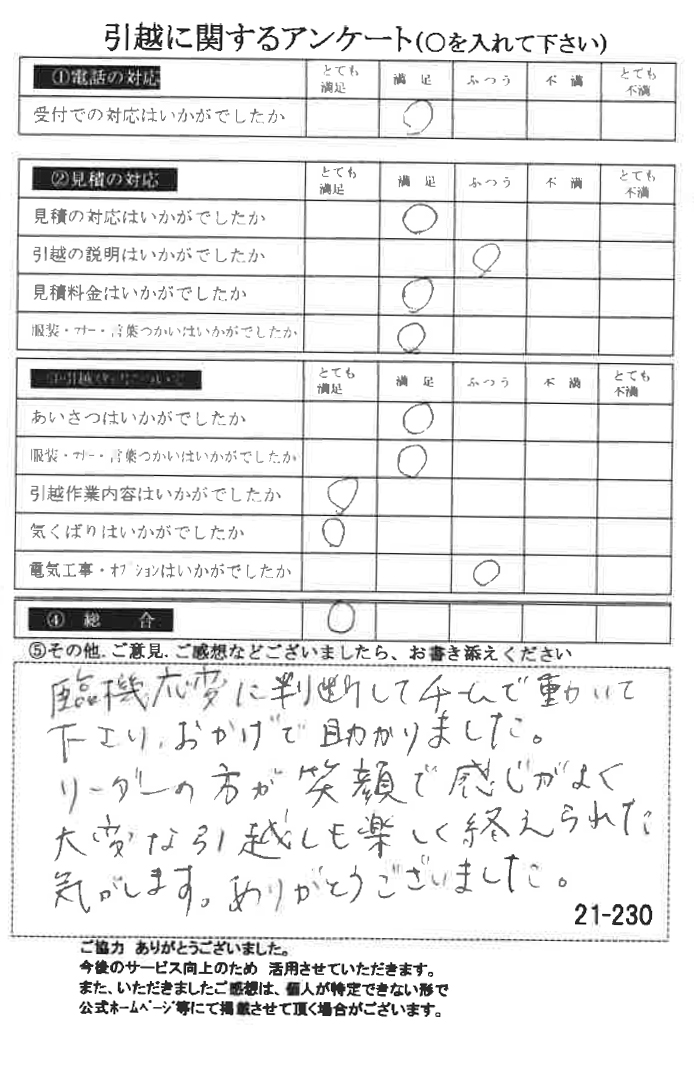 引越に関するアンケート(○を入れて下さい)
①電話の対応 とても満足 満足 ふつう 不満 とても不満
受付での対応はいかがでしたか ○
②見積の対応 とても満足 満足 ふつう 不満 とても不満
見積の対応はいかがでしたか ○
引越の説明はいかがでしたか ○
見積料金はいかがでしたか ○
服装・マナー・言葉つかいはいかがでしたか ○
とても満足 満足 ふつう 不満 とても不満
あいさつはいかがでしたか ○
服装・マナー・言葉つかいはいかがでしたか ○
引越作業内容はいかがでしたか ○
気くばりはいかがでしたか ○
電気工事・オプションはいかがでしたか ○
④総合 ○
⑤その他.ご意見.ご感想などございましたら、お書き添えください
臨機応変に判断してチームで動いて
下さり、おかげで助かりました。
リーダーの方が笑顔で感じがよく
大変な引越しも楽しく終えられた
気がします。ありがとうございました。
21-230
ご協力 ありがとうございました。
今後のサービス向上のため 活用させていただきます。
また、いただきましたご感想は、個人が特定できない形で
公式ホームページ等にて掲載させて頂く場合がございます。